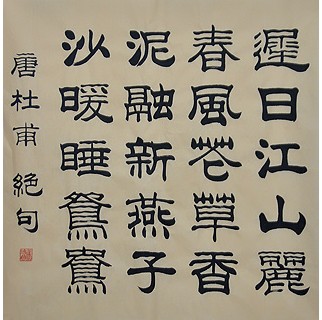 遲日江山麗
春風花草香
泥融新燕子
沙暖睡鴛鴦
唐杜甫 絕句